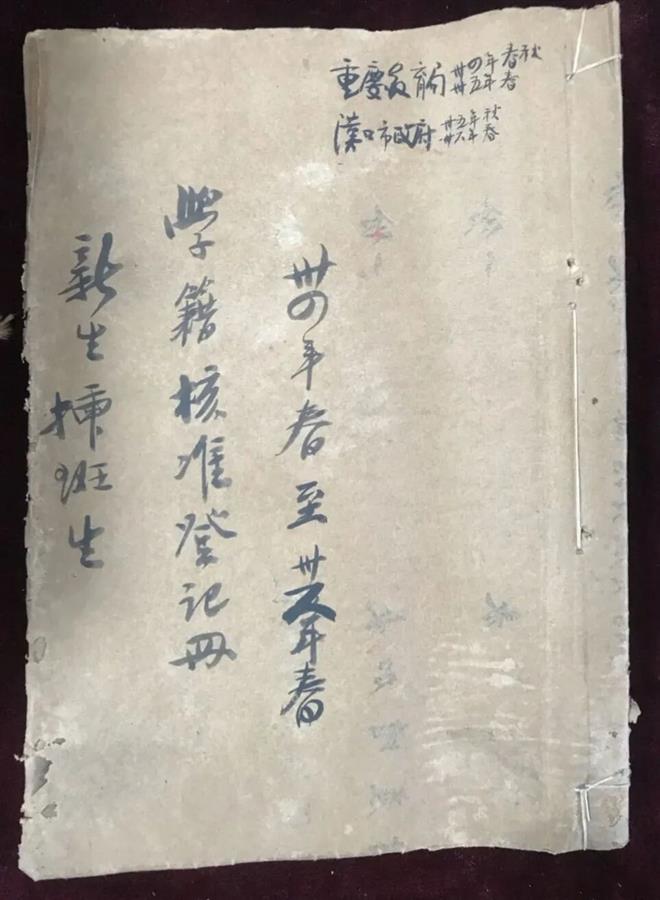 重慶教育局 卅四年春秋
卅五年春
漢口市政府 卅五年秋
卅六年春
卅四年春至卅六年春
學籍核准登記冊
新生插班生